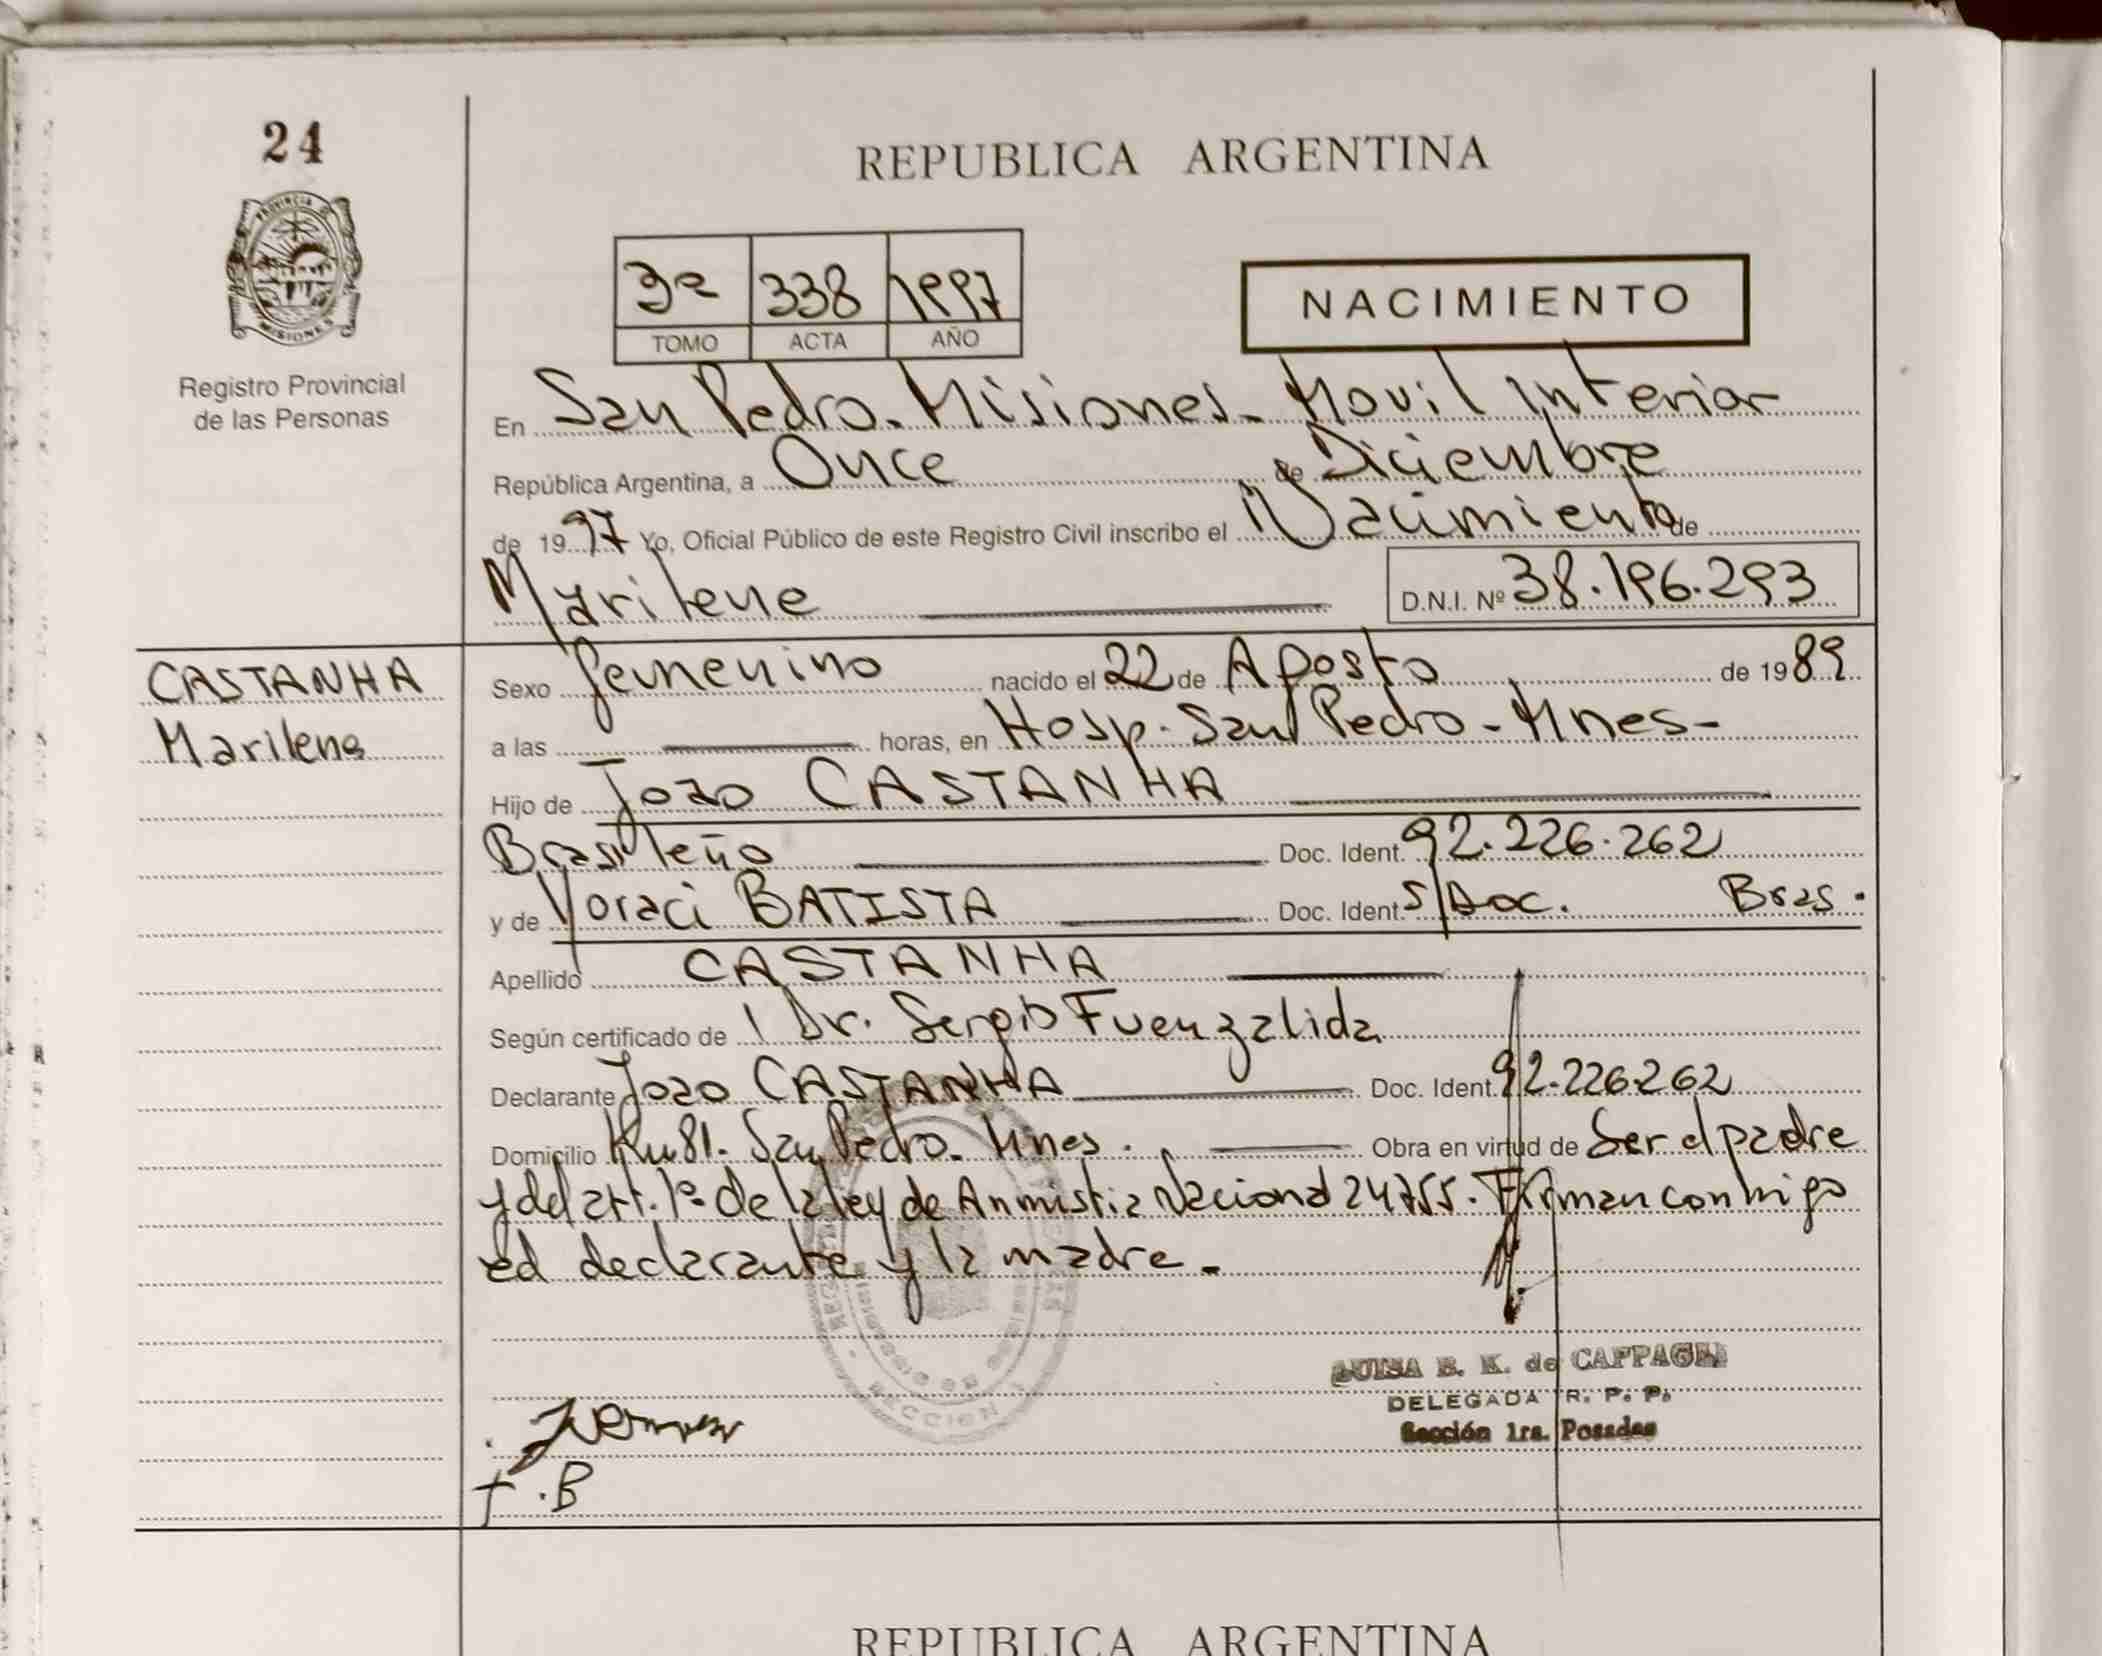 24
REPUBLICA ARGENTINA
PROVINCIA DE
MISIONES
Registro Provincial
de las Personas
3º 338 1997
TOMO ACTA AÑO
NACIMIENTO
En San Pedro - Misiones - Movil Interior
República Argentina, a Once de Diciembre
de 1997 Yo, Oficial Público de este Registro Civil inscribo el Nacimiento de
Marilene D.N.I. Nº 38.196.293
CASTANHA
Marilene
Sexo femenino nacido el 22 de Agosto de 1989
a las horas, en Hosp. San Pedro - Mnes -
Hijo de Joao CASTANHA
Brasileño Doc. Ident. 92.226.262
y de Yoraci BATISTA Doc. Ident. S/Doc. Bras.
Apellido CASTANHA
Según certificado de Dr. Sergio Fuenzalida
Declarante Joao CASTANHA Doc. Ident. 92.226.262
Domicilio Km 81. San Pedro - Mnes. Obra en virtud de Ser el padre
y del art. 1º de la ley de Anmistia Nacional 24755. Firman conmigo
el declarante y la madre.
LUISA E. K. de CAPPAGLI
DELEGADA R. P. P.
Sección 1ra. Posadas
SECCION 1
B
REPUBLICA ARGENTINA